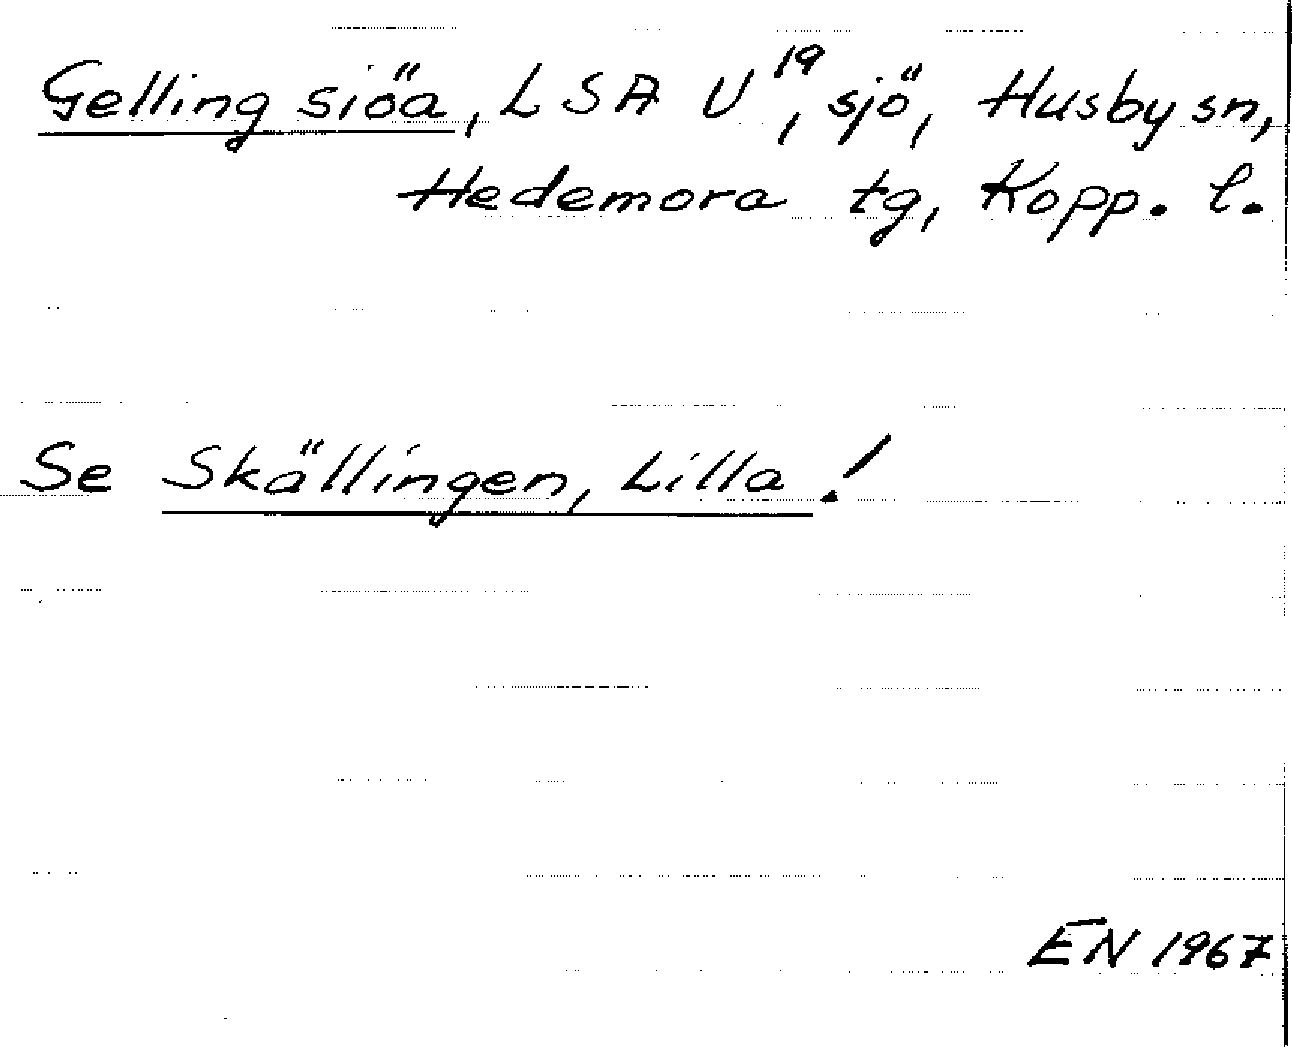 Gelling siöa, LSA U¹⁹, sjö, Husby sn,
Hedemora tg, Kopp. l.
Se Skällingen, Lilla!
EN 1967